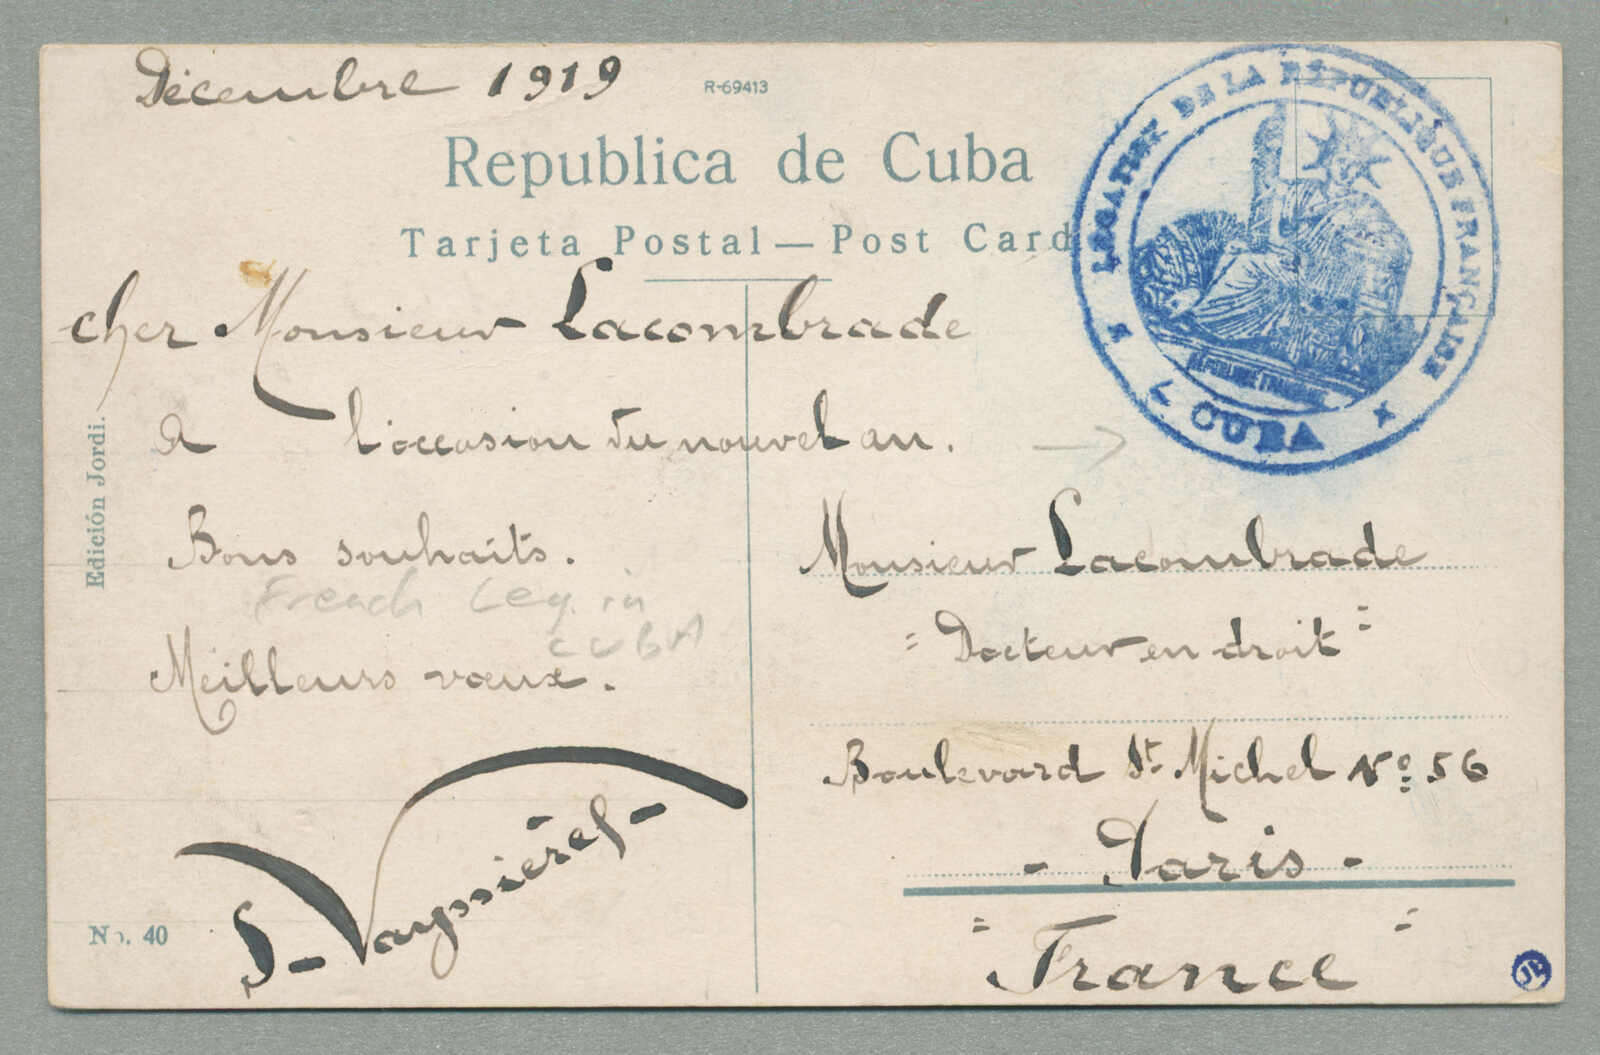 Décembre 1919
R-69413
Republica de Cuba
Tarjeta Postal — Post Card
LÉGATION DE LA RÉPUBLIQUE FRANÇAISE
CUBA
cher Monsieur Lacombrade
a l'occasion du nouvel an.
Bons souhaits.
French Leg. in
CUBA
Meilleurs vœux.
Vayssières
Edición Jordi.
No. 40
Monsieur Lacombrade
"Docteur en droit"
Boulevard St. Michel No. 56
- Paris -
"France"